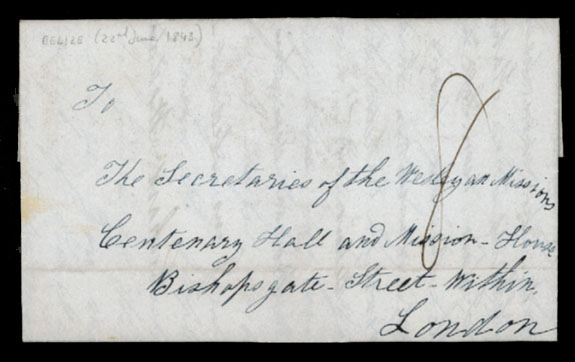 BELIZE (22nd June/1843)
To
8
The Secretaries of the Wesleyan Missions
Centenary Hall and Mission-House
Bishopsgate-Street-Within.
London